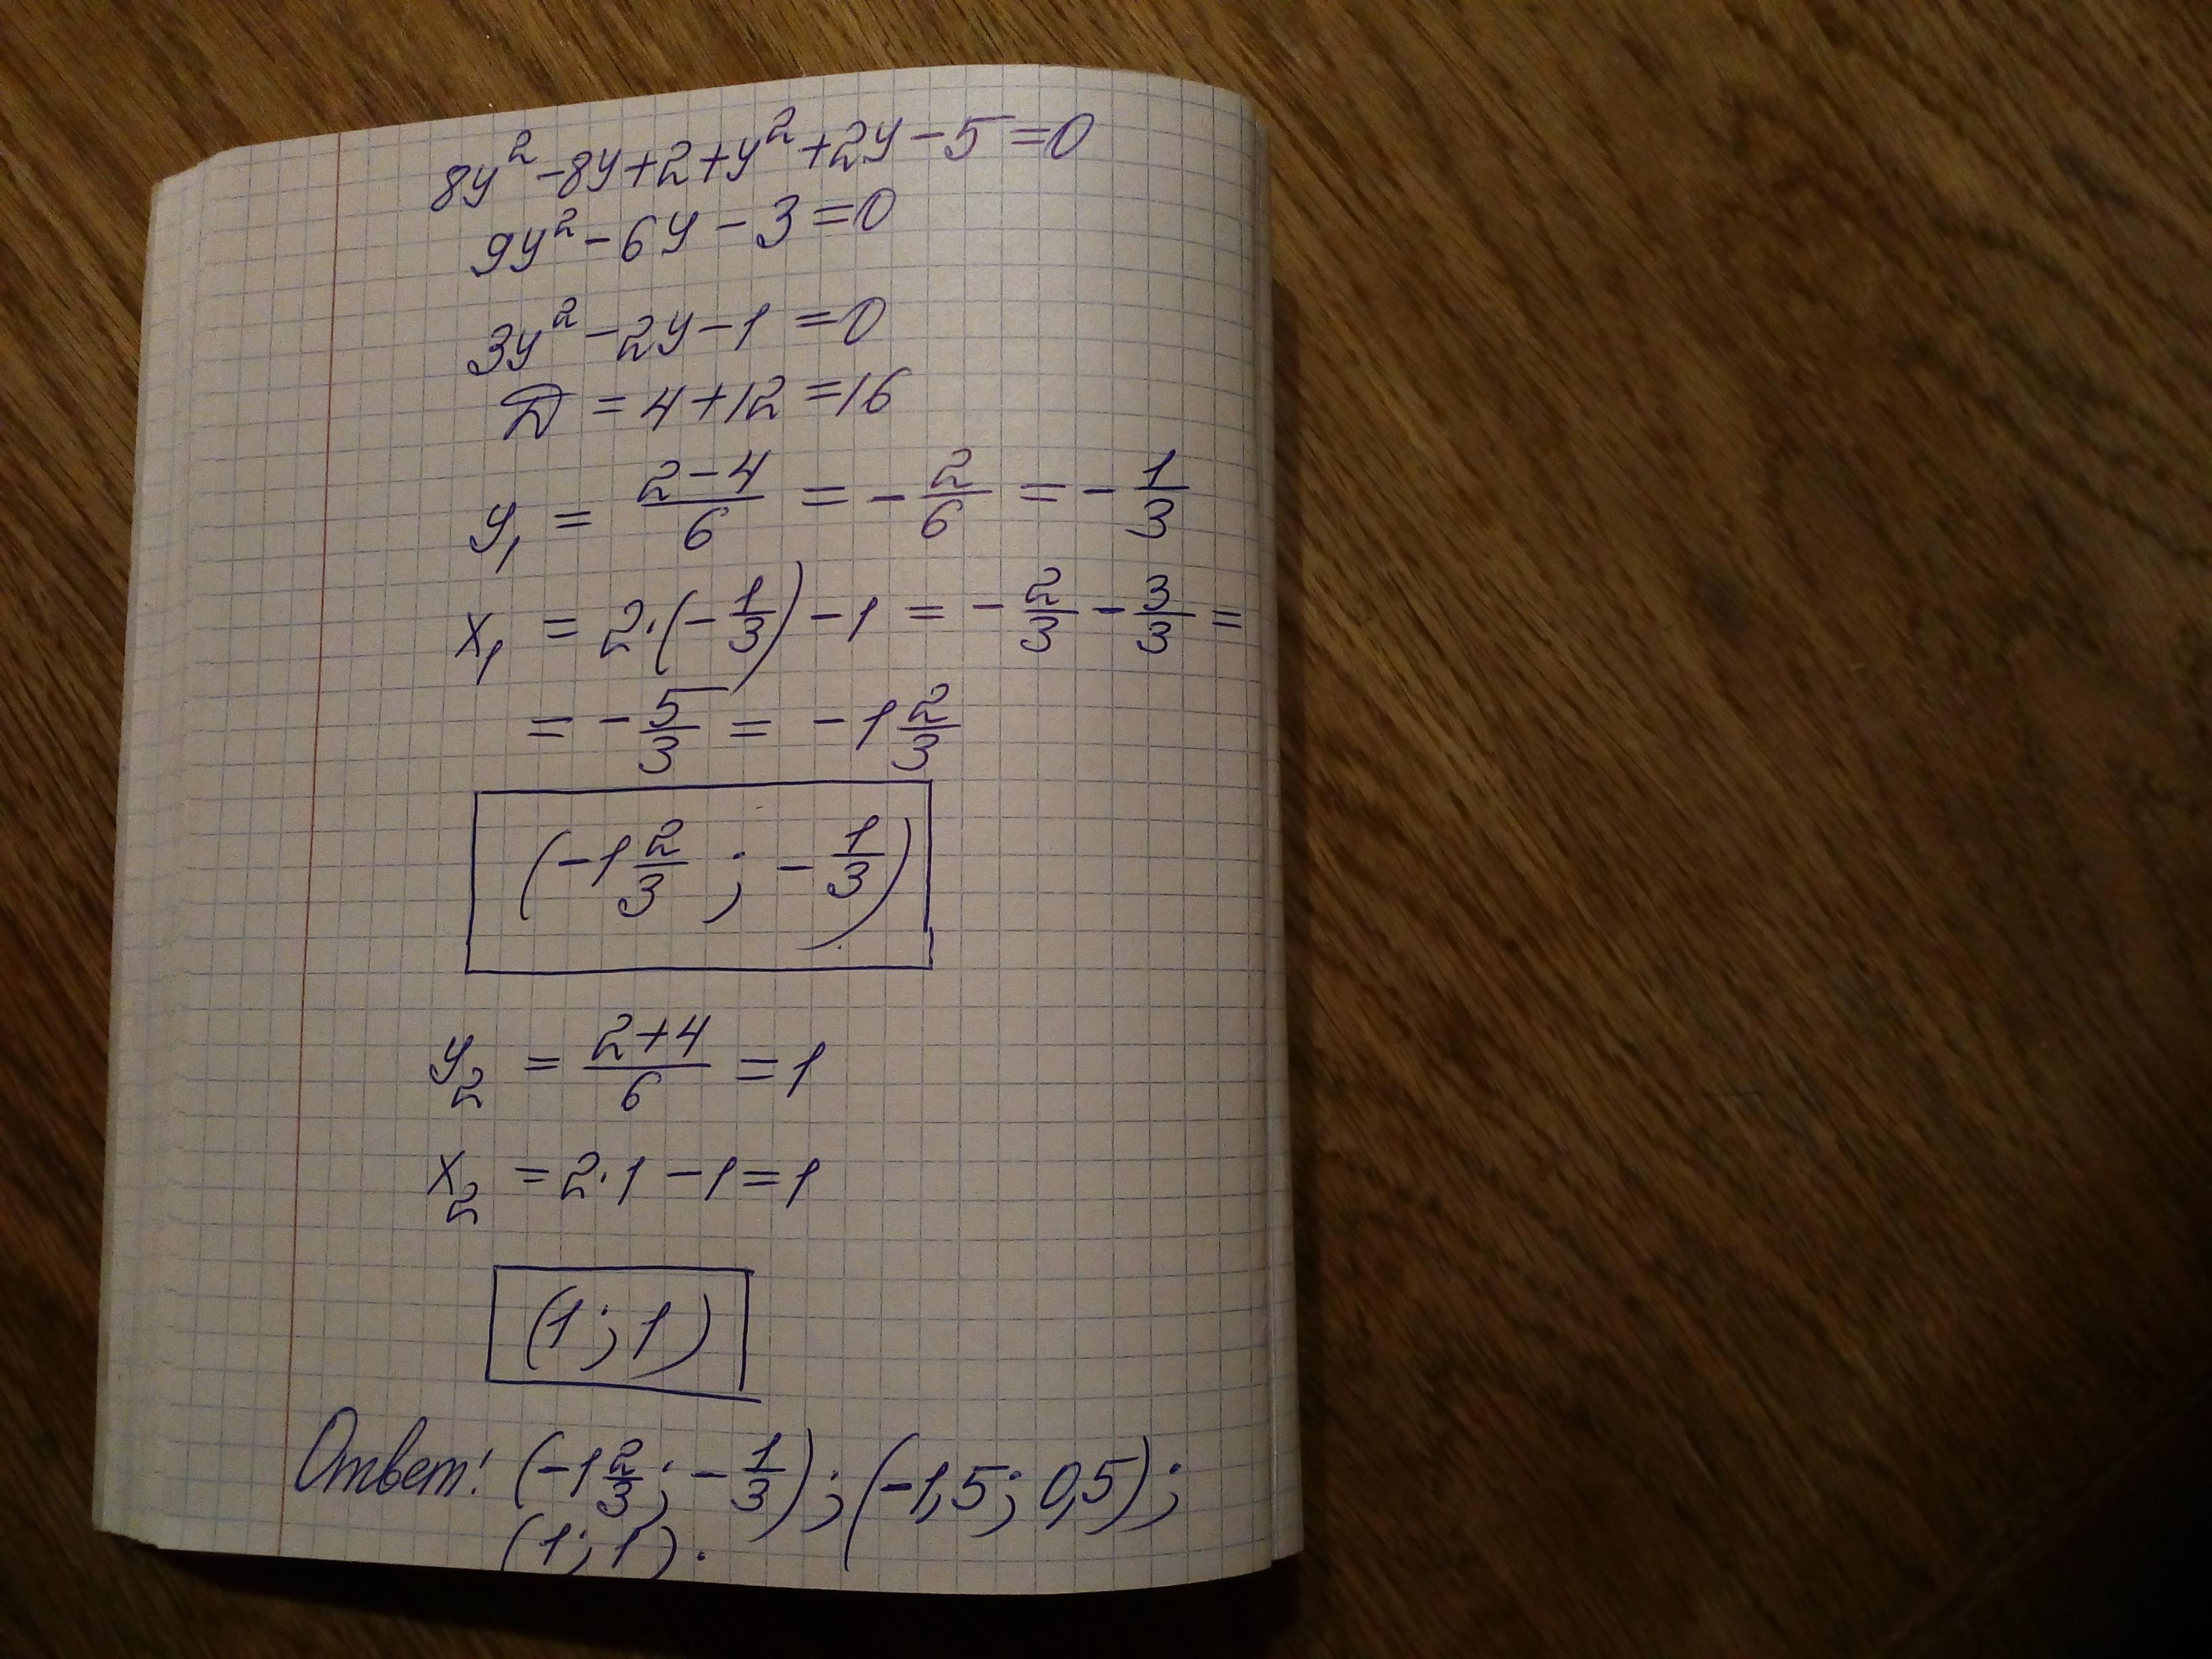 8y² - 8y + 2 + y² + 2y - 5 = 0
9y² - 6y - 3 = 0
3y² - 2y - 1 = 0
D = 4 + 12 = 16
y₁ = (2-4)/6 = - 2/6 = - 1/3
x₁ = 2·(- 1/3) - 1 = - 2/3 - 3/3 =
= - 5/3 = - 1 2/3
(-1 2/3 ; - 1/3)
y₂ = (2+4)/6 = 1
x₂ = 2·1 - 1 = 1
(1; 1)
Ответ: (-1 2/3; - 1/3); (-1,5; 0,5);
(1; 1).